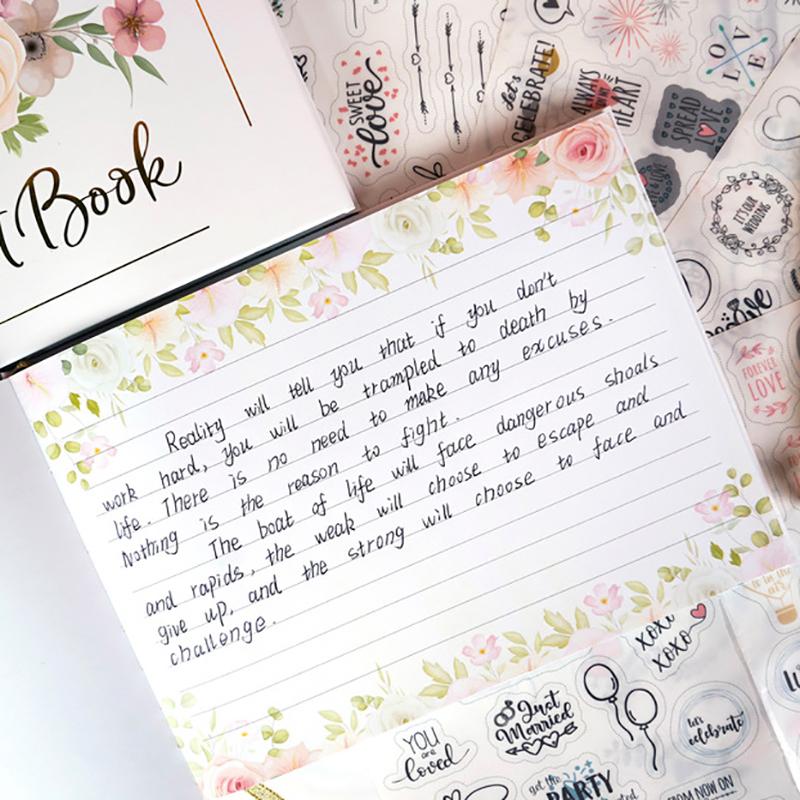 Book
SWEET
love
let's
CELEBRATE!
ALWAYS
HEART
LOVE
SPREAD
LOVE
IT'S OUR
WEDDING
FOREVER
LOVE
Reality will tell you that if you don't
work hard, you will be trampled to death by
life. There is no need to make any excuses.
Nothing is the reason to fight.
The boat of life will face dangerous shoals
and rapids, the weak will choose to escape and
give up, and the strong will choose to face and
challenge.
xoxo
xoxo
Just
Married
YOU
are
loved
let's
celebrate
get the
PARTY
FROM NOW ON